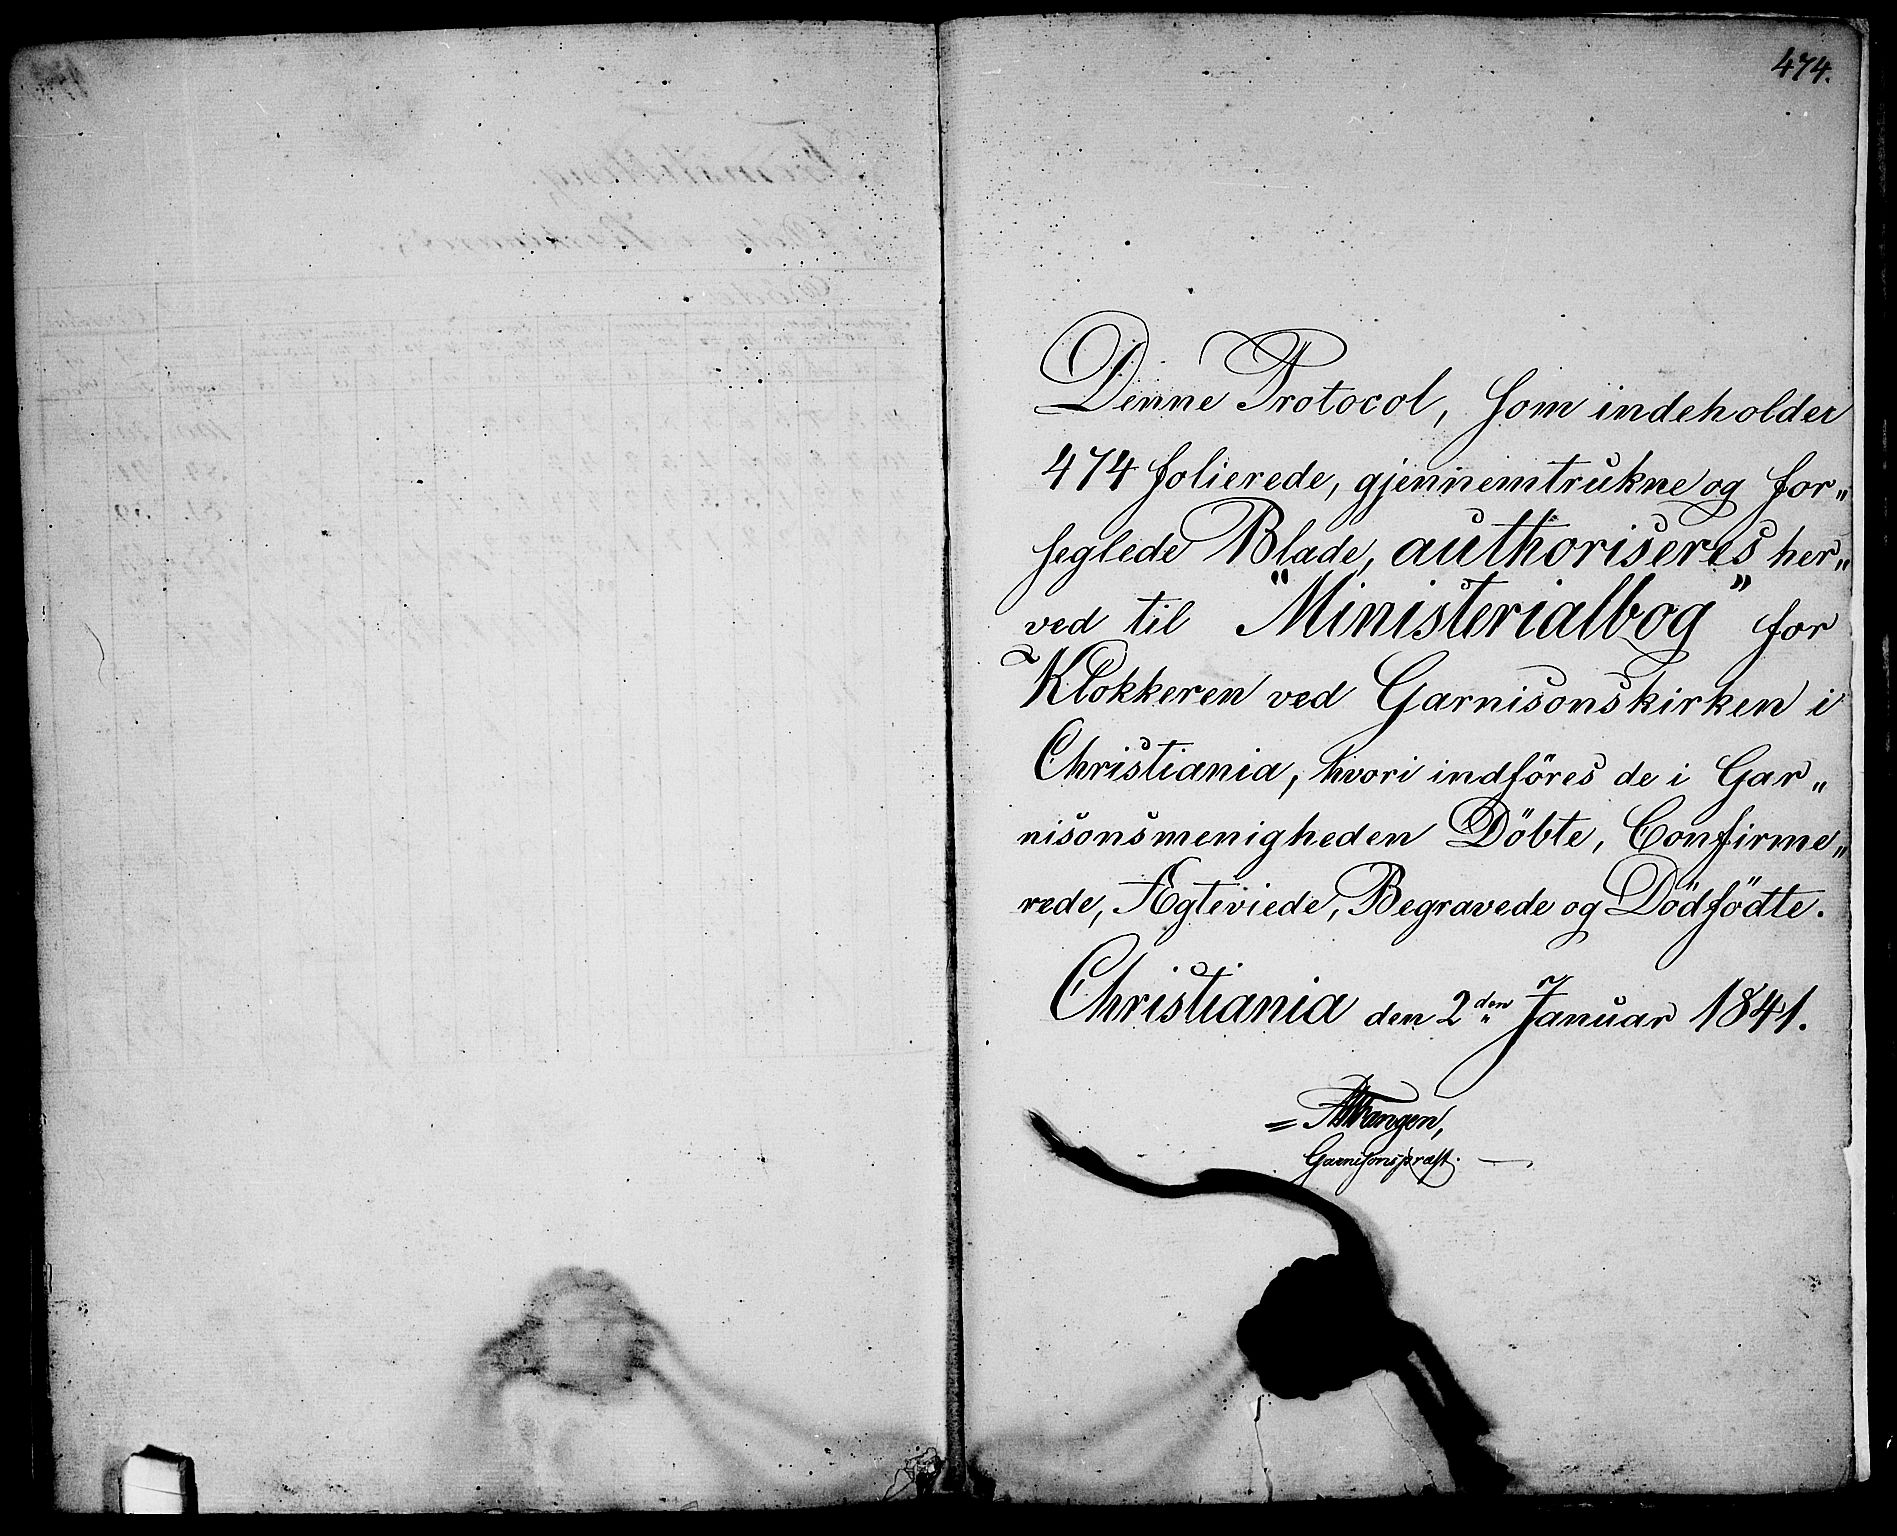 474.
Denne Protocol, som indeholder
474 folierede, gjennemtrukne og for„
seglede Blade, authoriseres her„
ved til "Ministerialbog" for
Klokkeren ved Garnisonskirken i
Christiania, hvori indföres de i Gar„
nisonsmenigheden Döbte, Confirme„
rede, Ægteviede, Begravede og Dödfödte.
Christiania den 2den Januar 1841.
Wangen,
Garnisonspræst.